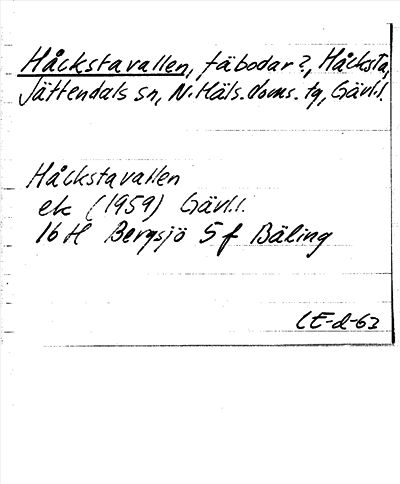 Håckstavallen, fäbodar?, Håcksta,
Jättendals sn, N. Häls. doms. tg, Gävl.l.
Håckstavallen
ek (1959) Gävl.l.
16 H Bergsjö 5 f Bäling